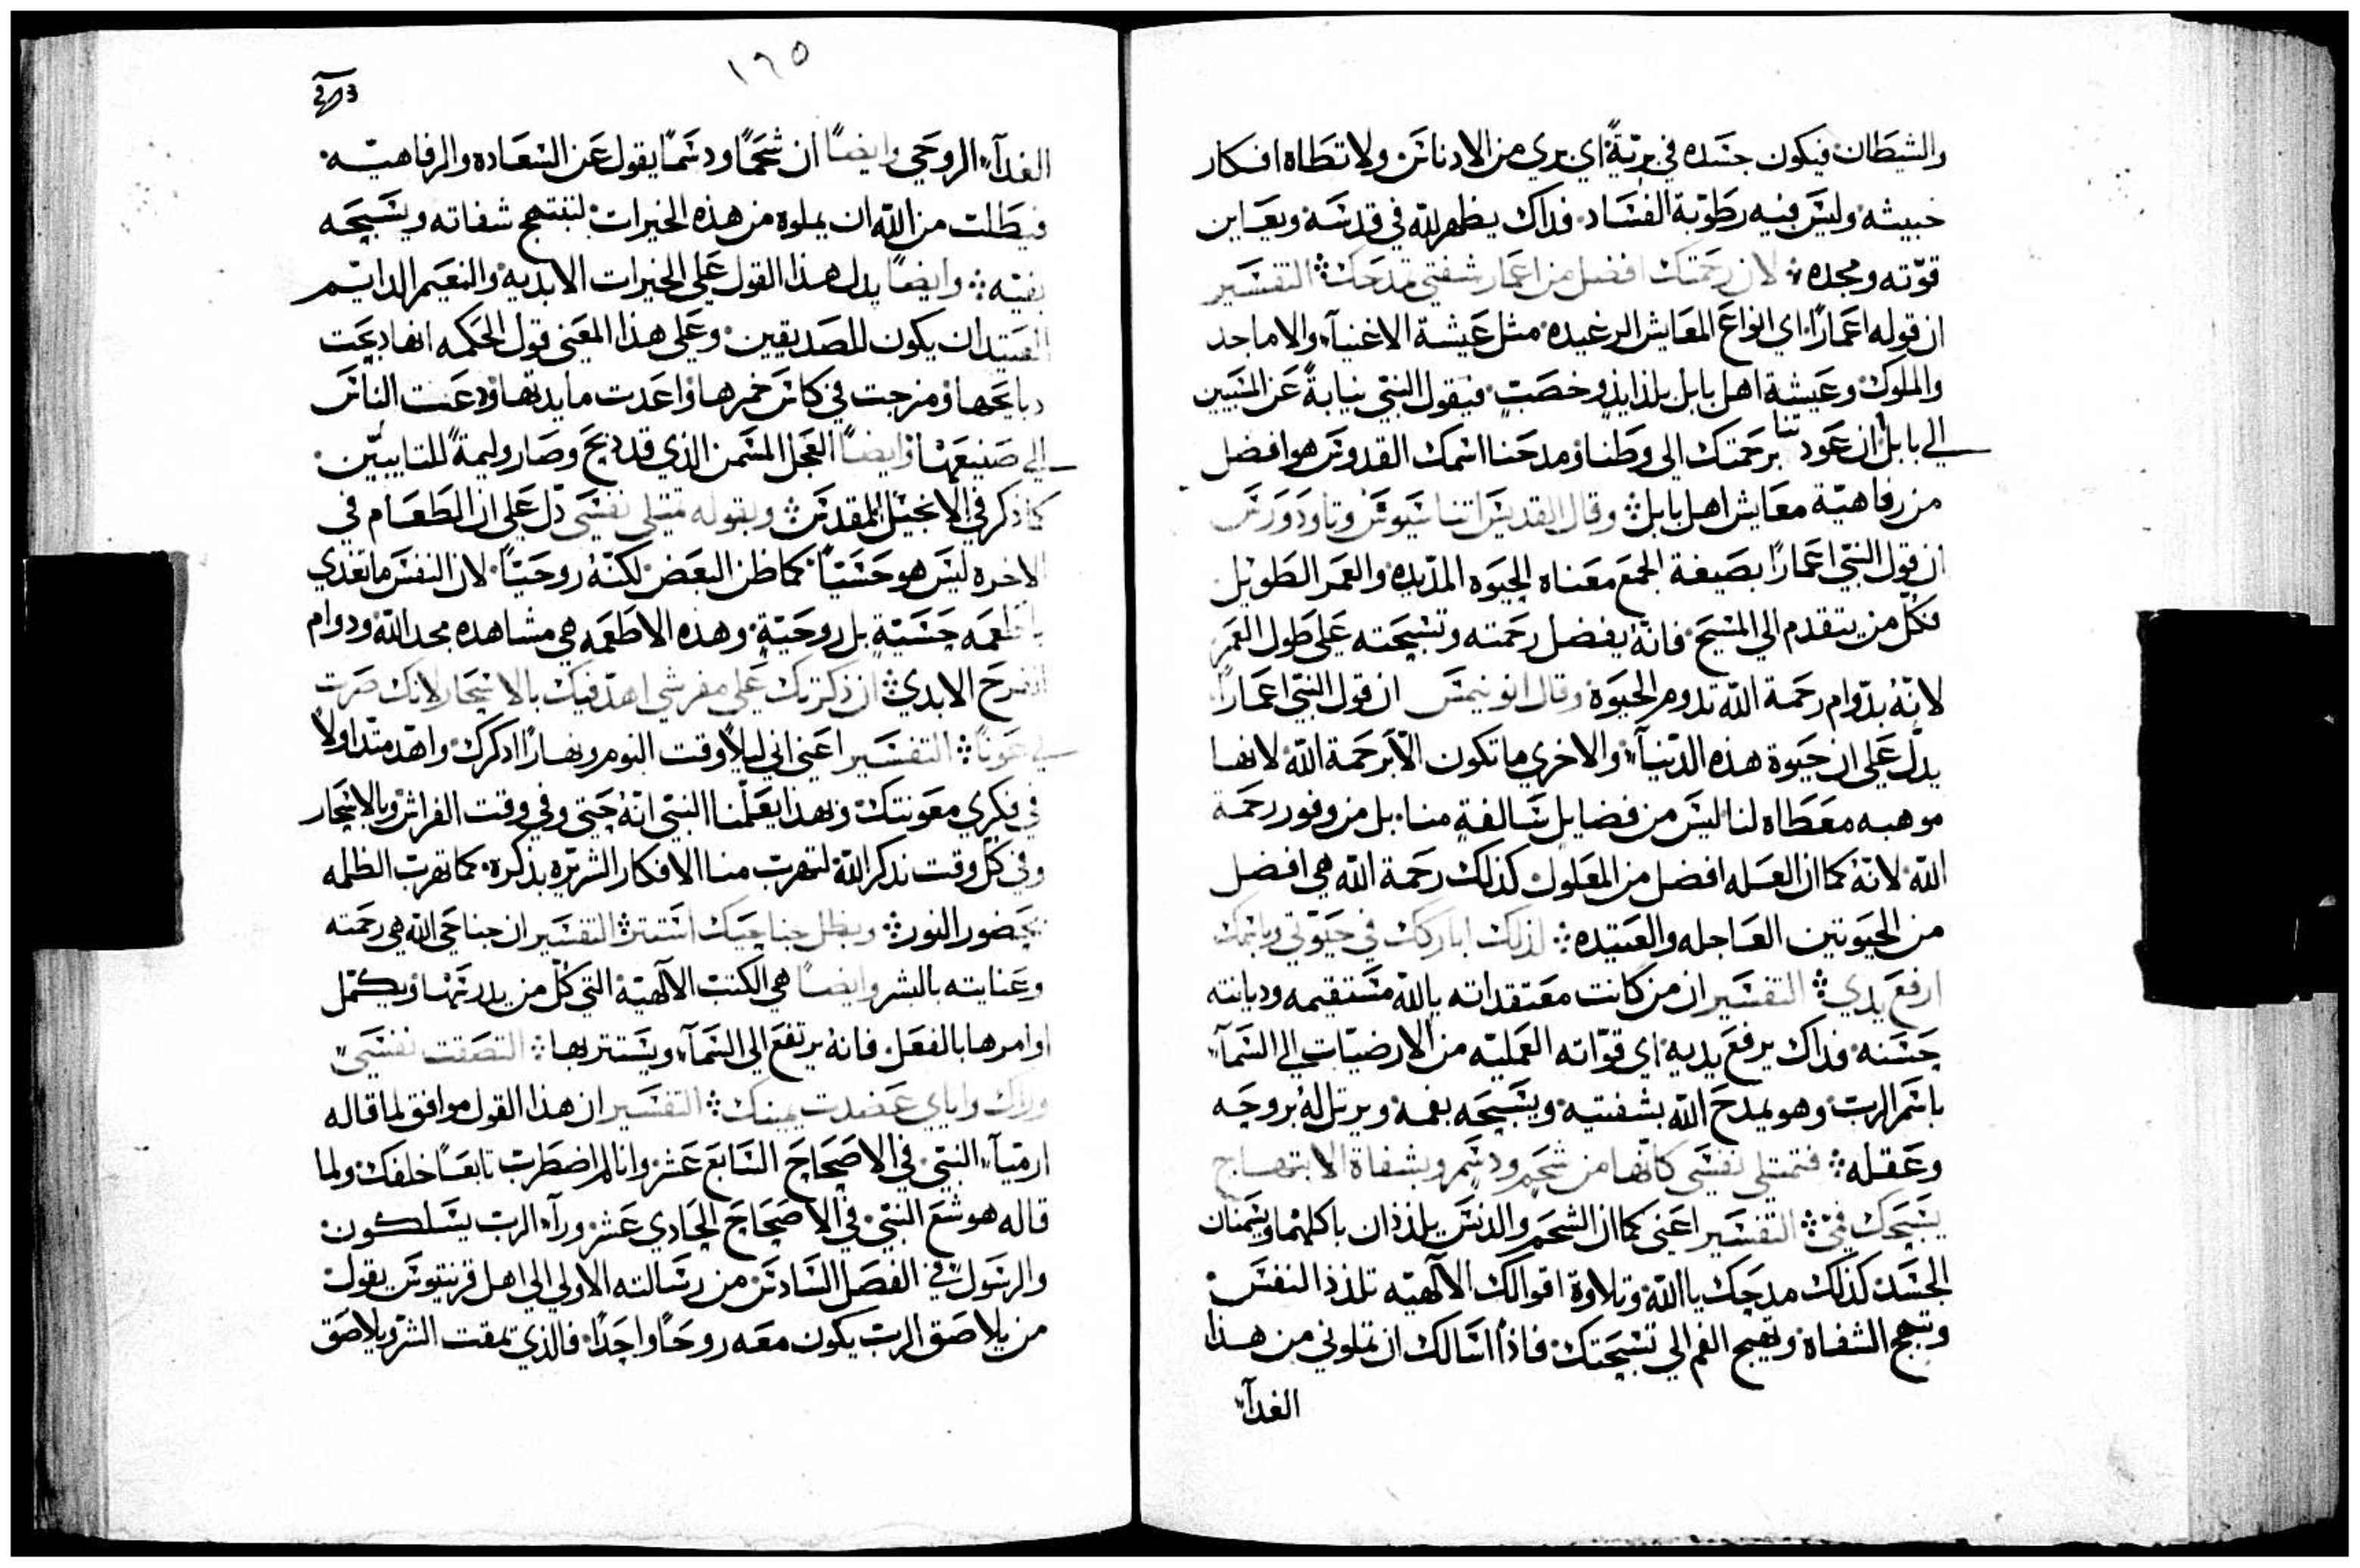 والشيطان فيكون جسده في برّيّةً اي بري من الادناس ولا تطاه افكار
خبيثه وليس فيه رطوبة الفساد فداك يظهر لله في قدسه ويعاين
قوّته ومجده لان رحمتك افضل من اعمار شفتي تمدحك التفسير
ان قوله اعمارًا اي انواع المعايش الرغيده مثل عيشة الاغنيآء والاماجد
والملوك وعيشة اهل بابل بلذايذ وخصب فيقول النبي نيابةً عن المسبيين
الي بابل ان عودتنا برحمتك الى وطننا ومدحنا اسمك القدوس هو افضل
من رفاهيّة معايش اهل بابل وقال القديس اتناسيوس وتاودورس
ان قول النبي اعمارًا بصيغة الجمع معناه الحيوه المديده والعمر الطويل
فكل من يتقدم الي المسيح فانه يفضل رحمته وتسبحته على طول العمر
لانّهُ بدوام رحمة الله تدوم الحيوة وقال انونيمس ان قول النبي اعمارًا
يدل على ان حيوة هذه الدنيآ والاخري ما تكون الّا برحمة الله لانها
موهبه معطاه لنا ليس من فضايل سالفةٍ منا بل من وفور رحمة
الله لانّهُ كما ان العله افضل من المعلول كذلك رحمة الله هي افضل
من الحيوتين العاجله والعتيده لذلك اباركك في حيوتي وباسمك
ارفع يدي التفسير ان من كانت معتقداته بالله مستقيمه وديانته
حسنه فداك يرفع يديه اي قوّاته العمليّه من الارضيّات الي السمآ
باسم الرب وهو يمدح الله بشفتيه ويسبحه بفمه ويرتل لهُ بروحه
وعقله فتمتلي نفسي كانّها من شحم ودسم وبشفاة الابتهاج
يسبحك فمي التفسير اعني كما ان الشحم والدسم يلذذان باكلهما ويسمنان
الجسد كذلك مدحك يا الله وتلاوة اقوالك الالهيّه تلذذ النفس
وتبهج الشفاة وتهيج الفم الي تسبحتك فاذًا اسالك ان تملوني من هذا
الغدآ
١٦٥
الغدآ الروحي وايضًا ان شحمًا ودسمًا يقول عن السعاده والرفاهيّه
فيطلب من الله ان يملوه من هذه الخيرات لتبتهج شفاته ويسبحه
بفيه وايضًا يدل هذا القول على الخيرات الابديه والنعيم الدايم
العتيد ان يكون للصديقين وعلى هذا المعنى قول الحكمه انها دبحت
دبايحها ومزجت في كاس خمرها واعدت مايدتها ودعت الناس
الي صنيعها وايضًا العجل المسمن الذي قد دبح وصار وليمةً للتايبين
كما ذكر في الانجيل المقدس وبقوله تمتلي نفسي دل على ان الطعام في
الاخره ليس هو حسيًا كما ظن البعض لكنّهُ روحيًا لان النفس ما تغدي
باطعمه حسيّةٍ بل روحيّةٍ وهذه الاطعمه هي مشاهده مجد الله ودوام
الفرح الابدي ان ذكرتك على مفرشي اهدّ فيك بالاسحار لانك صرت
لي عونًا التفسير اعني اني ليلاً وقت النوم ونهارًا ادكرك واهدّ متداولاً
في فكري معونتك وبهذا يعلّمنا النبي انّهُ حتي وفي وقت الفراش وبالاسحار
وفي كل وقت ندكر الله لتهرب منا الافكار الشريره بذكره كما تهرب الظلمه
بحضور النور وبظل جناحيك استتر التفسير ان جناحي الله هي رحمته
وعنايته بالبشر وايضًا هي الكتب الالهيّه التي كل من يدرسها ويكمّل
اوامرها بالفعل فانه يرتفع الى السمآ ويستتر بها التصقت نفسي
وراك واياي عضدت يمينك التفسير ان هذا القول موافق لما قاله
ارميآ النبي في الاصحاح السابع عشر وانا لم اضطرب تابعًا خلفك ولما
قاله هوشع النبي في الاصحاح الحادي عشر ورآء الرب يسلكون
والرسول في الفصل السادس من رسالته الاولي الي اهل قرنتيوس يقول
من يلاصق الرب يكون معه روحًا واحدًا فالذي يمقت الشر ويلاصق